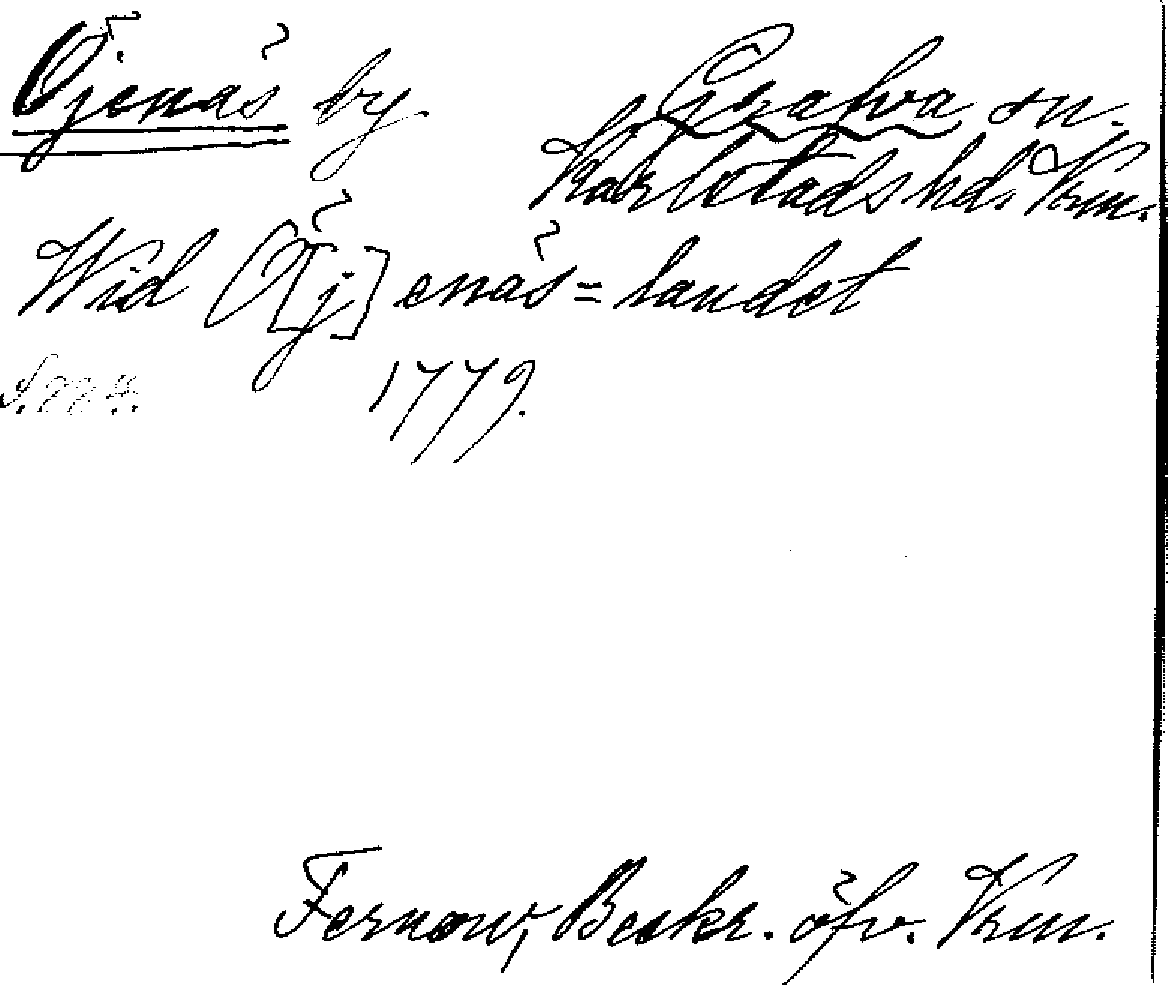 Öjenäs by. Grava sn.
Karlstads hd. Vrm.
Wid Ö[j]enäs=landet
1779.
Fernow, Beskr. öfv. Vrm.